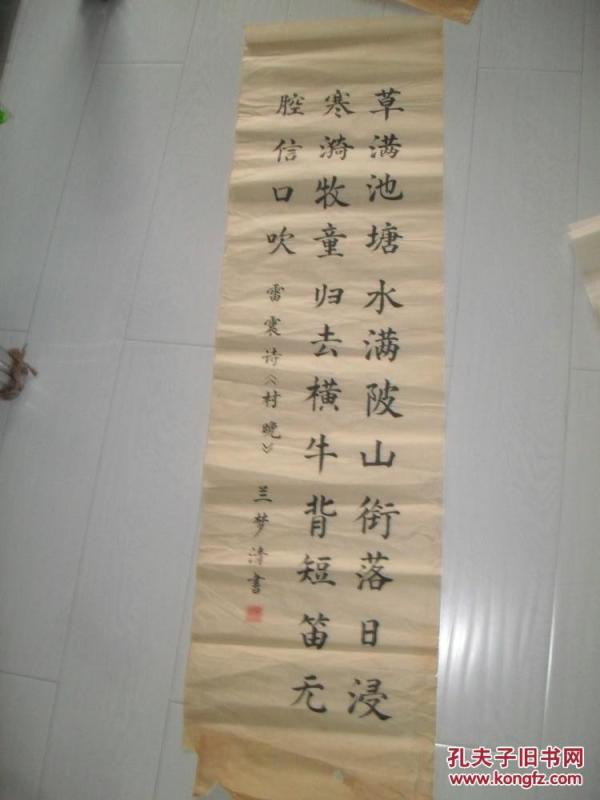 草满池塘水满陂山衔落日浸
寒漪牧童归去横牛背短笛无
腔信口吹
雷震诗《村晚》
兰梦涛书
孔夫子旧书网
www.kongfz.com